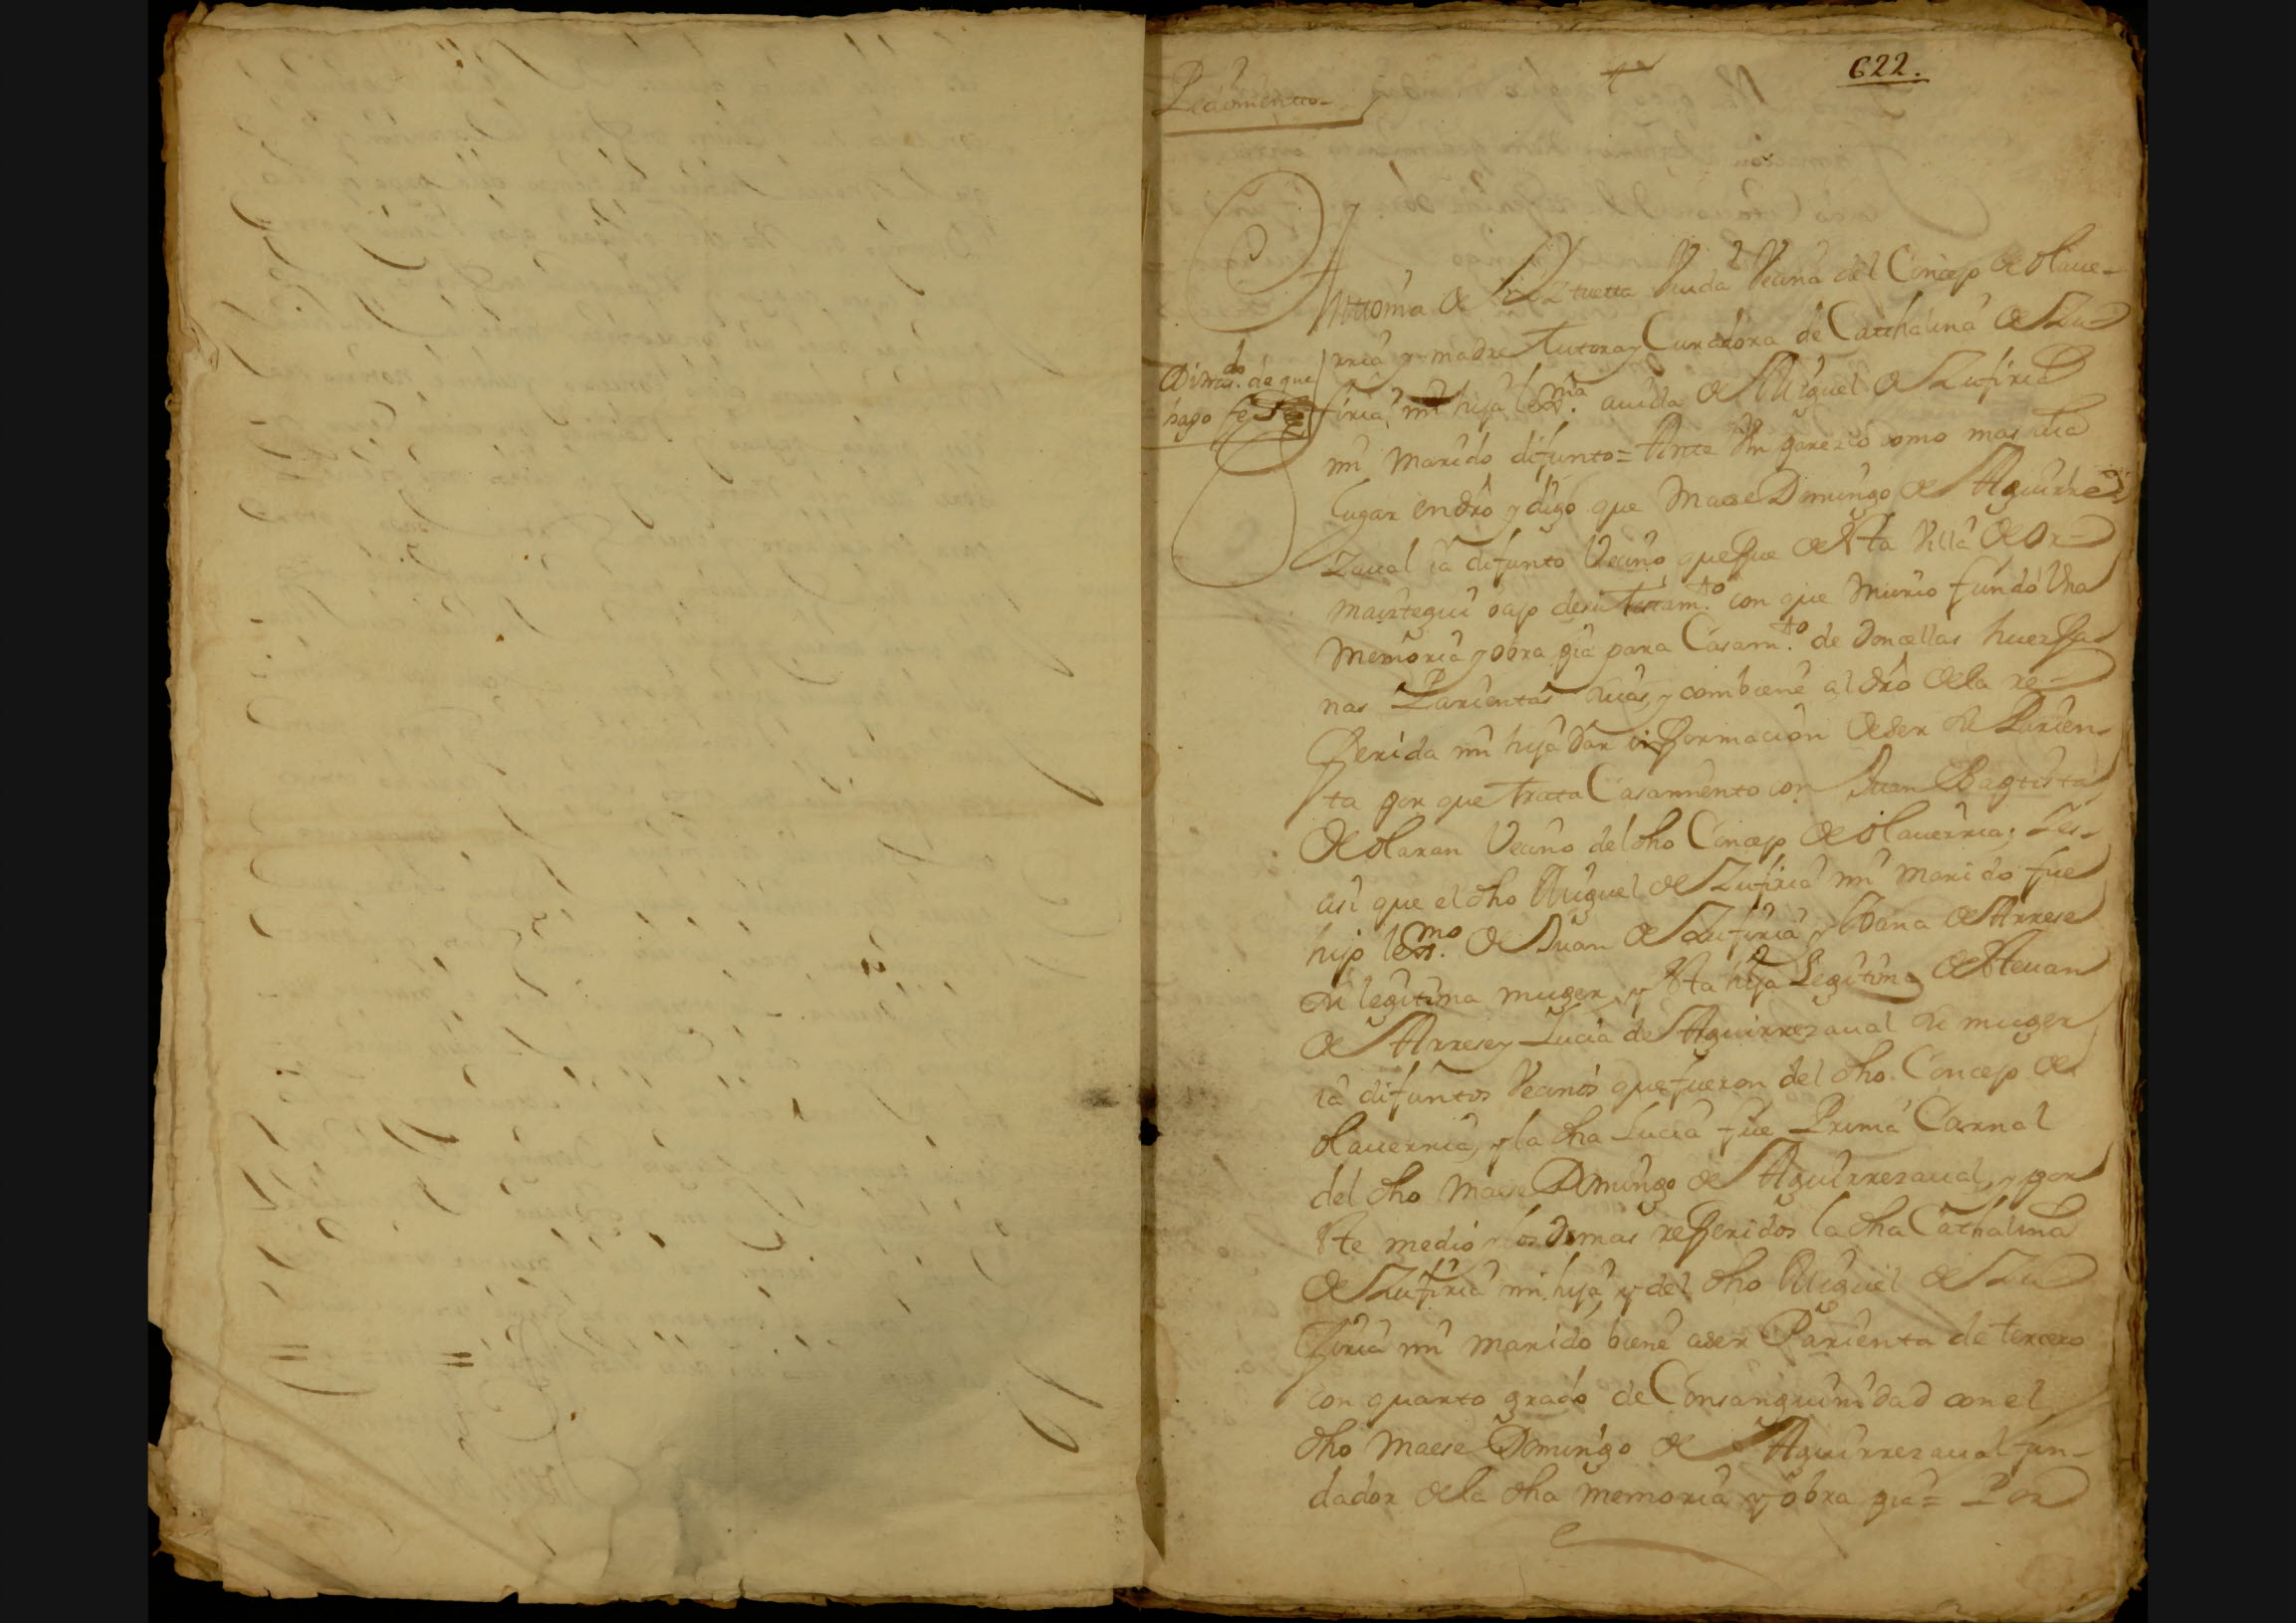 622.
Pedimento
Anttonia de Viuda Vecina del Concejo de olaue-
rria y madre tutora y Curadora de Catthalina de Zu-
firia mi hija legma. auida de Miguel de Zufiria
mi marido difunto = Ante Vm parezco como mas aia
lugar en dro y digo que Maese Domingo de Aguirre
zaual ia difunto Vecino que fue desta Villa de or-
maiztegui vajo de su testamto. con que murio fundo Vna
memoria y obra pia para Casamto. de doncellas huerfa-
nas Parientas suias, y combiene al dro de la re-
ferida mi hija dar informacion de ser su Parien-
ta por que trata Casamiento con Juan Baptista
de olaran Vecino del dho Concejo de olauerria, y es
asi que el dho Miguel de Zufiria mi marido fue
hijo legmo. de Juan de Zufiria y Joana de Arrese
su legitima muger, y esta hija Legitima de esteuan
de Arrese y Lucia de Aguirrezaual su muger
ia difuntos Vecinos que fueron del dho Concejo de
olauerria, y la dha Lucia fue Prima Carnal
del dho Maese Domingo de Aguirrezaual, y por
este medio y los demas referidos la dha Cathalina
de Zufiria mi hija, y del dho Miguel de Zu
firia mi marido biene aser Parienta de tercero
con quarto grado de Consanguinidad con el
dho Maese Domingo de Aguirrezaual fun-
dador de la dha memoria y obra pia = Por
de que
hago fe